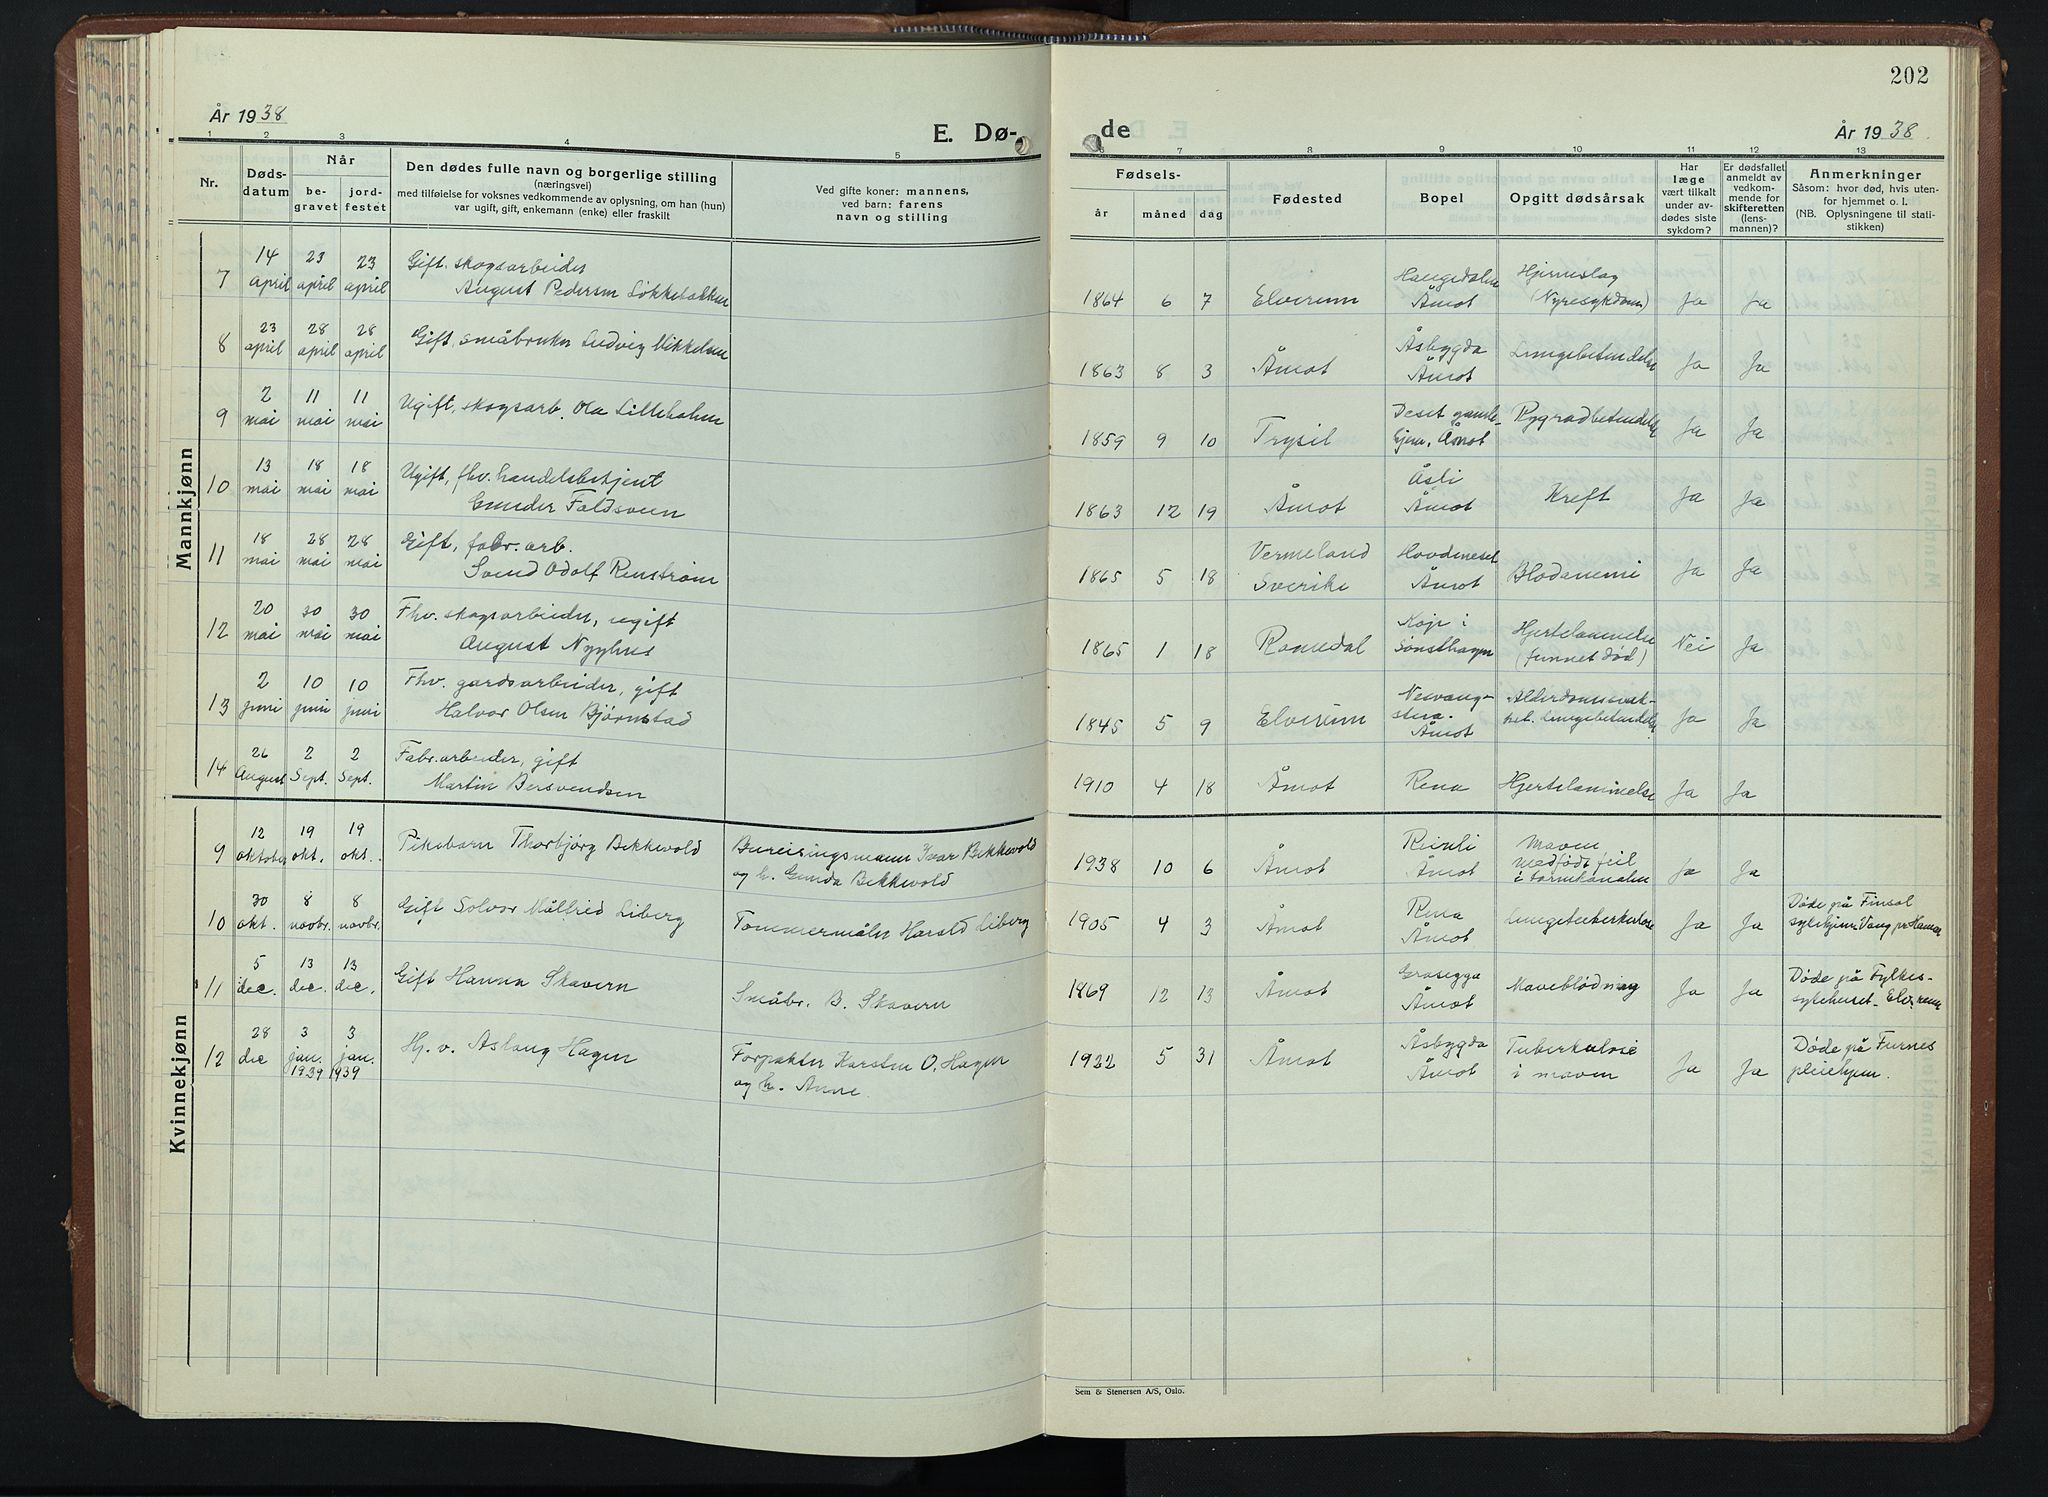 202
År 1938
E. Dø-
de
År 1938
1 2 3 4 5
6 7 8 9 10 11 12 13
Nr.
Døds-
datum
Når
be-
gravet
jord-
festet
Den dødes fulle navn og borgerlige stilling
(næringsvei)
med tilføielse for voksnes vedkommende av oplysning, om han (hun)
var ugift, gift, enkemann (enke) eller fraskilt
Ved gifte koner: mannens,
ved barn: farens
navn og stilling
Fødsels-
år
måned
dag
Fødested
Bopel
Opgitt dødsårsak
Har
læge
vært tilkalt
under av-
dødes siste
sykdom?
Er dødsfallet
anmeldt av
vedkom-
mende for
skifteretten
(lens-
mannen)?
Anmerkninger
Såsom: hvor død, hvis uten-
for hjemmet o. l.
(NB. Oplysningene til stati-
stikken)
Mannkjønn
7 14 april 23 april 23 april Gift. skogsarbeider
August Pedersen Løkkebakken
1864 6 7 Elverum Haugedalen Åmot Hjerneslag (Nyresykdom) Ja Ja
8 23 april 28 april 28 april Gift, småbruker Ludvig Mikkelsen
1863 8 3 Åmot Åsbygda Åmot Lungebetendelse Ja Ja
9 2 mai 11 mai 11 mai Ugift, skogsarb. Ola Lilleholen
1859 9 10 Trysil Deset gamle- hjem, Åmot Rygradbetendelse Ja Ja
10 13 mai 18 mai 18 mai Ugift, fhv. handelsbetjent
Gunder Foldsveen
1863 12 19 Åmot Åsli Åmot Kreft Ja Ja
11 18 mai 28 mai 28 mai Gift, fabr. arb.
Svend Odolf Renstrøm
1865 5 18 Vermeland Sverike Hovdeneset Åmot Blodanemi Ja Ja
12 20 mai 30 mai 30 mai Fhv. skogsarbeider, ugift
August Nyhus
1865 1 18 Romedal Koje i Sønsthagen Hjertelammelse (funnet død) Nei Ja
13 2 juni 10 juni 10 juni Fhv. gardsarbeider, gift
Halvor Olsen Bjørnstad
1845 5 9 Elverum Åmot Alderdomssvak- het. Lungebetendelse Ja Ja
14 26 August 2 Sept. 2 Sept. Fabr. arbeider, gift
Martin Bersvendsen
1910 4 18 Åmot Rena Hjertelammelse Ja Ja
Kvinnekjønn
9 12 oktober 19 okt. 19 okt. Pikebarn Thorbjørg Bekkevold
Bureisingsmann Ivar Bekkevold
og h. Gunda Bekkevold
1938 10 6 Åmot Reinli Åmot Medfødt feil i tarmkanalen Ja Ja
10 30 okt. 8 novbr. 8 novbr. Gift Solvor Målfrid Liberg
Tommermåler Harald Liberg
1905 4 3 Åmot Rena Åmot Lungetuberkulose Ja Ja Døde på Finsol
sykehjem Vang pr Hamar
11 5 dec. 13 dec. 13 dec. Gift Hanna Skavern
Småbr. B. Skavern
1869 12 13 Åmot Grasegga Åmot Maveblødning Ja Ja Døde på Fylkes-
sykehuset - Elverum
12 28 dec 3 jan. 1939 3 jan. 1939 Hj. v. Aslaug Hagen
Forpakter Karsten O. Hagen
og h. Anne
1922 5 31 Åmot Åsbygda Åmot Tuberkulose i maven Ja Ja Døde på Furnes
pleiehjem.
Sem & Stenersen A/S, Oslo.